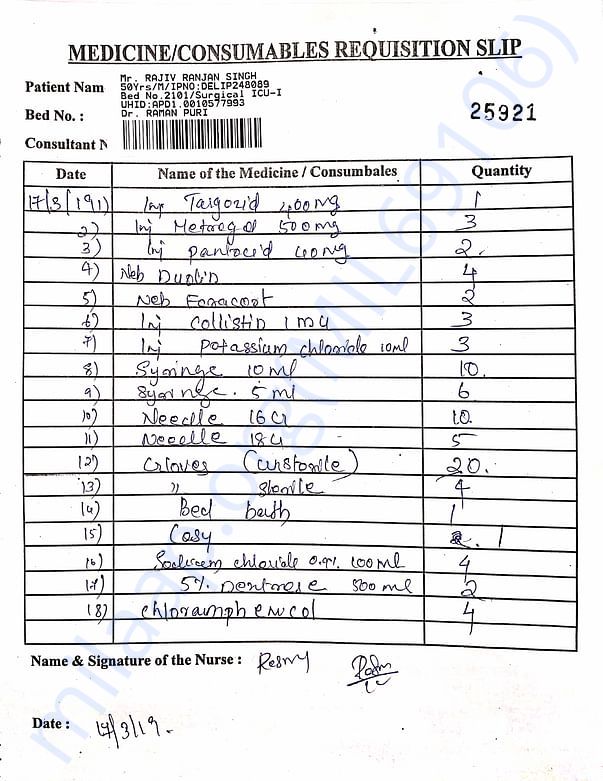 MEDICINE/CONSUMABLES REQUISITION SLIP
Patient Nam Mr. RAJIV RANJAN SINGH
50Yrs/M/IPNO:DELIP248089
Bed No.2101/Surgical ICU-I
UHID:APD1.0010577993
Bed No. : Dr. RAMAN PURI
25921
Consultant N
Date Name of the Medicine / Consumbales Quantity
17/3/19 1) Inj Targocid 400mg 1
2) Inj Metrogyl 500mg 3
3) Inj pantocid 40mg 2.
4) Neb Duolin 4
5) Neb Foracort 2
6) Inj Collistin 1 mu 3
7) Inj Potassium chloride 10ml 3
8) Syringe 10 ml 10.
9) Syringe. 5 ml 6
10) Needle 16G 10.
11) Needle 18G 5
12) Gloves (unsterile) 20.
13) " sterile 4
14) Bed bath 1
15) Cosy 1
16) Sodium chloride 0.9% 100ml 4
17) 5% Dextrose 500 ml 2
18) chloramphenicol 4
Name & Signature of the Nurse : Resmy
Date : 17/3/19.
milaap.org(MIL69106)